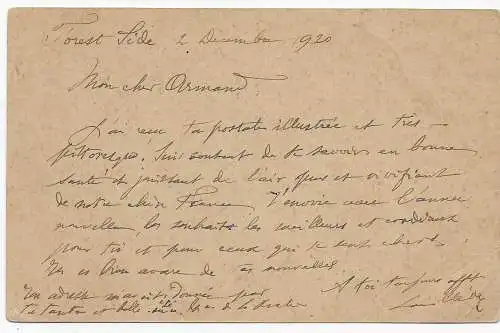 Forest Side 2 Décembre 1920
Mon cher Armand,
J'ai reçu ta postale illustrée et très
pittoresque. Suis content de te savoir en bonne
santé et jouissant de l'air pur et vivifiant
de notre chère France. T'envoie avec l'année
nouvelle les souhaits les meilleurs et cordiaux
pour toi et pour ceux qui te sont chers.
Tu es bien avare de tes nouvelles.
Ton adresse m'a été donnée par A toi toujours afft
ta tante et